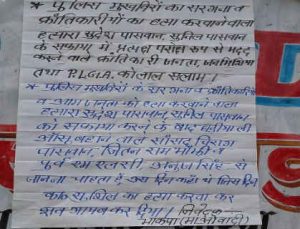 * पुलिस मुखबिरों का सरगना व
क्रांतिकारीयों का हत्या करवाने वाला
हत्यारा सुदेश पासवान, सुनिल पासवान
के सफाया में प्रत्यक्ष परोक्ष रूप से मदद
करने वाले क्रांतिकारी जनता, जनमिलिशिया
तथा P.L.G.A. को लाल सलाम।
* पुलिस मुखबिरों के सरगना व क्रांतिकारियों
व आम जनता को हत्या करवाने वाला
हत्यारा सुदेश पासवान, सुनील पासवान
को सफाया करने के बाद घड़ियाली
आँसू बहाने वाले सांसद चिराग
पासवान, जितन राम मांझी व
पूर्व एम एलसी अनुज सिंह से
जानना चाहता है, उस दिन कहाँ थे जिस दिन
का हत्या करवा कर
दिया। निवेदक
भाकपा (माओवादी)